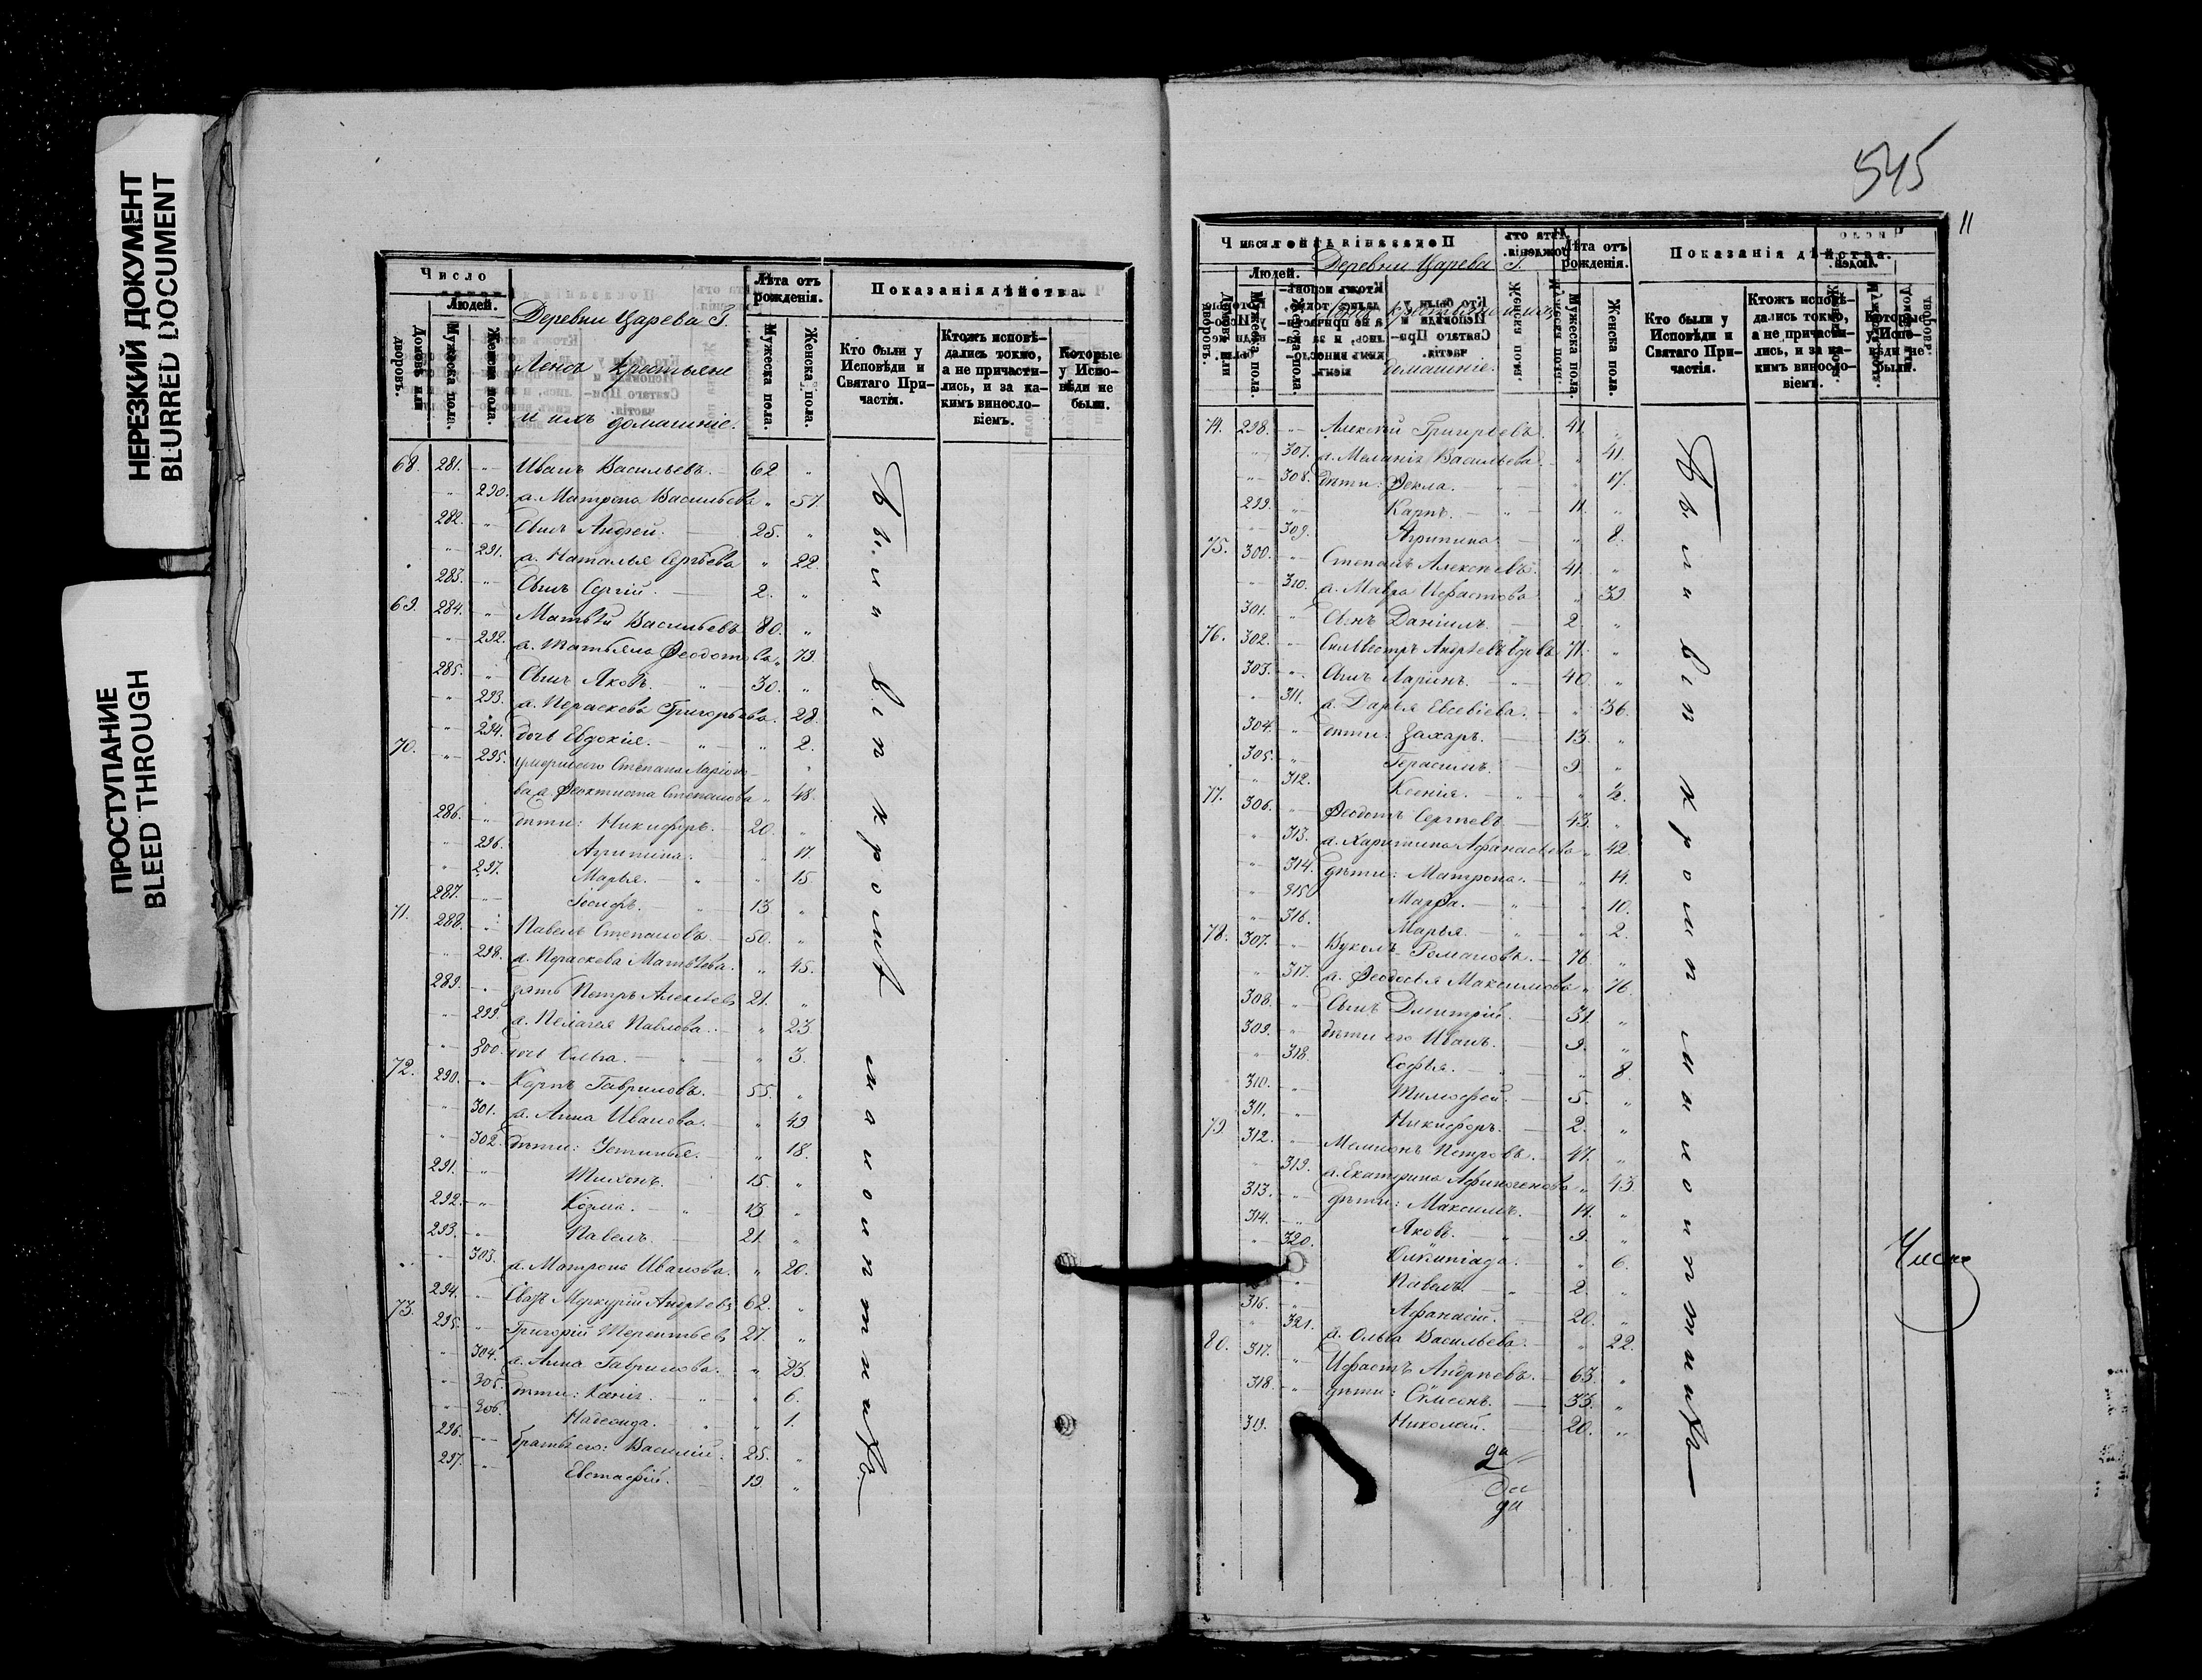 НЕРЕЗКИЙ ДОКУМЕНТ
BLURRED DOCUMENT
ПРОСТУПАНИЕ
BLEED THROUGH
Число
Людей.
Домовъ или дворовъ.
Мужеска пола.
Женска пола.
Деревни Царева
крестьяне
и ихъ домашніе.
Лѣта отъ рожденія.
Мужеска пола.
Женска пола.
Показанія дѣйства.
Кто были у Исповѣди и Святаго Причастія.
Ктожъ исповѣдались токмо, а не причастились, и за какимъ винословіемъ.
Которые у Исповѣди не были.
68. 281. Иванъ Васильевъ. 62
290. ж. Матрона Васильева 57.
282. Сынъ Андрей. 25.
291. ж. Наталья Сергѣева 22
283. Сынъ Сергій. 2.
69. 284. Матвѣй Васильевъ 80.
292. ж. Татьяна Феодотова 79.
285. Сынъ Яковъ. 30.
293. ж. Параскева Григорьева. 28.
294. дочь Евдокія. 2.
70. 295. умершаго Степана Ларіонова ж. Феоктиста Степанова 48.
286. дѣти: Никифоръ. 20.
296. Агрипина. 17.
297. Марья. 15
287. Іосифъ. 13
71. 288. Павелъ Степановъ. 50.
298. ж. Параскева Матвѣева. 45.
289. зять Петръ Алексѣевъ 21.
299. ж. Пелагея Павлова. 23
300. дочь Ольга. 3.
72. 290. Карпъ Гавриловъ. 55.
301. ж. Анна Иванова. 49
302. дѣти: Устинья. 18.
291. Тихонъ. 15.
292. Козма. 13
293. Павелъ. 21.
303. ж. Матрона Иванова. 20.
294. Сватъ Меркурій Андрѣевъ 62.
73. 295. Григорій Терентьевъ 27.
304. ж. Анна Гаврилова. 23
305. дѣти: Ксенія. 6.
306. Надежда. 1.
296. братья его: Василій. 25.
297. Евстафій. 19.
Были вси кромѣ
545
11
Деревни Царева
домашніе.
Людей.
Мужеска пола.
Женска пола.
Лѣта отъ рожденія.
Мужеска пола.
Женска пола.
Показанія дѣйства.
Кто были у Исповѣди и Святаго Причастія.
Ктожъ исповѣдались токмо, а не причастились, и за какимъ винословіемъ.
Которые у Исповѣди не были.
74. 298. Алексѣй Григорьевъ. 41.
307. ж. Меланія Васильева. 41.
308. дѣти: Фекла. 17.
299. Карпъ. 11.
309. Агрипина. 8.
75. 300. Степанъ Алексѣевъ. 41.
310. ж. Мавра Ифастова 39
301. Сынъ Даніилъ. 2.
76. 302. Силвестръ Андрѣевъ вдовъ 71.
303. Сынъ Ларіонъ. 40.
311. ж. Дарья Евсевіева. 36.
304. дѣти: Захаръ. 13.
305. Герасимъ. 9.
312. Ксенія. ½.
77. 306. Феодотъ Сергѣевъ 43.
313. ж. Харитина Афанасьева 42.
314. дѣти: Матрона. 14.
315. Марфа. 10.
316. Марья. 2.
78. 307. Вуколъ Романовъ. 76.
317. ж. Феодосья Максимова 76.
308. Сынъ Дмитрій. 31.
309. дѣти его Иванъ. 9.
318. Софья. 8.
310. Тимофей. 5.
311. Никифоръ. 2.
79 312. Петровъ. 47.
319. ж. Екатерина Афиногенова 43.
313. дѣти: Максимъ. 14.
314. Яковъ. 9.
320. Олимпіада. 6.
Павелъ. 2.
316. Афанасій. 20.
321. ж. Ольга Васильева. 22.
80. 317. Ифастъ Андрѣевъ. 63.
318. дѣти: Сѵмеонъ. 33.
319. Николай. 20.
Были вси кроми